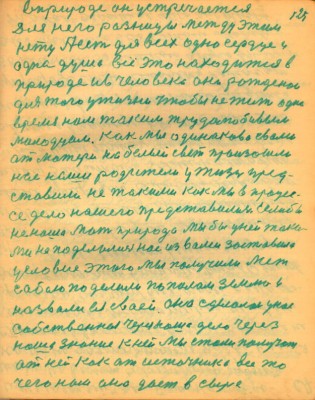 в природе он устречается 125
Для него разницы между этим
нету. А есть для всех одно сердце и
одна душа всё это находится в
природе и в человеке оно рождено
для того у жизни чтобы не жить одно
время нам таким трудолюбивым
молодцам. Как мы одинаково с вами
от матери на белый свет произошли
нас наши родители у жизни пред-
ставили не такими как мы в процес-
се дело нашего представились. Если бы
не наша мать природа мы бы у ней таки-
ми на поделили нас из вами заставило
условие этого мы получили Меж
собою поделили пополам землю и
назвали её своей. она сделалась у нас
собственная Через наше дело через
наше знание к ней Мы стали получать
от ней как от источника всё то
чего нам она дает в сыре